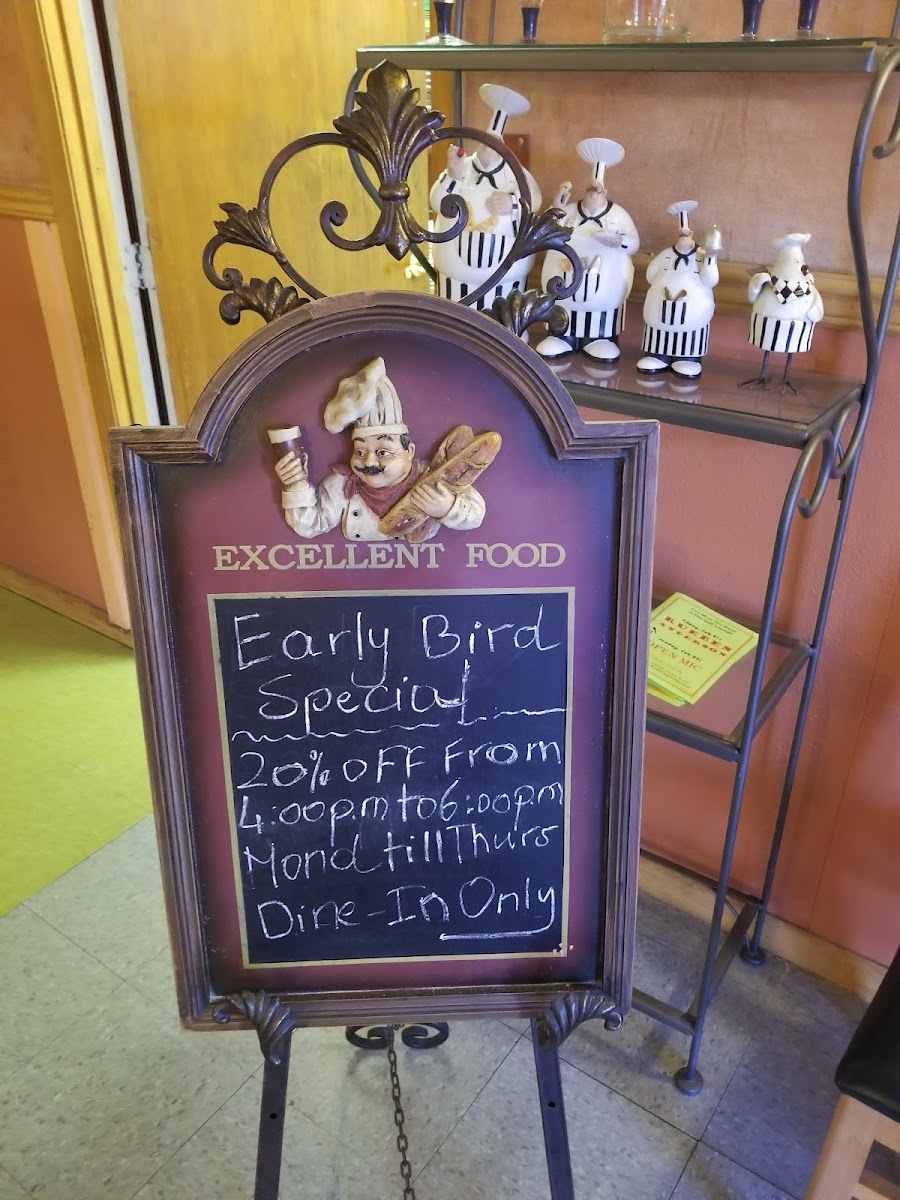 EXCELLENT FOOD
Early Bird
Special
20% OFF From
4:00p.m to 6:00p.m
Mond till Thurs
Dine-In Only
RUEBEN
ANDERSON
OPEN MIC